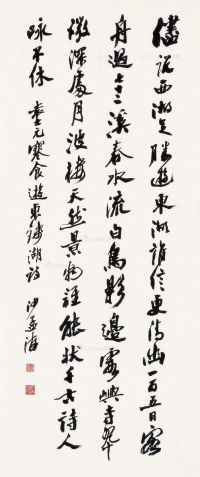 儘說西湖足勝遊東湖誰信更清幽一百五日客
舟過七十二溪春水流白鳥影邊霞嶼寺翠
微深處月波樓天然景物誰能狀千古詩人
詠不休 袁士元寒食遊東錢湖詩 沙孟海